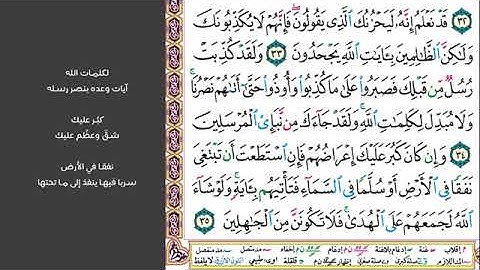 ٣٢ قَدْ نَعْلَمُ إِنَّهُۥ لَيَحْزُنُكَ ٱلَّذِى يَقُولُونَ فَإِنَّهُمْ لَا يُكَذِّبُونَكَ
وَلَٰكِنَّ ٱلظَّٰلِمِينَ بِـَٔايَٰتِ ٱللَّهِ يَجْحَدُونَ ٣٣ وَلَقَدْ كُذِّبَتْ
رُسُلٌ مِّن قَبْلِكَ فَصَبَرُوا۟ عَلَىٰ مَا كُذِّبُوا۟ وَأُوذُوا۟ حَتَّىٰٓ أَتَىٰهُمْ نَصْرُنَا
وَلَا مُبَدِّلَ لِكَلِمَٰتِ ٱللَّهِ وَلَقَدْ جَآءَكَ مِن نَّبَإِى۟ ٱلْمُرْسَلِينَ
٣٤ وَإِن كَانَ كَبُرَ عَلَيْكَ إِعْرَاضُهُمْ فَإِنِ ٱسْتَطَعْتَ أَن تَبْتَغِىَ
نَفَقًا فِى ٱلْأَرْضِ أَوْ سُلَّمًا فِى ٱلسَّمَآءِ فَتَأْتِيَهُم بِـَٔايَةٍ وَلَوْ شَآءَ
ٱللَّهُ لَجَمَعَهُمْ عَلَى ٱلْهُدَىٰ فَلَا تَكُونَنَّ مِنَ ٱلْجَٰهِلِينَ ٣٥
لكلمات الله
آيات وعده بنصر رسله
كبر عليك
شقّ وعظُم عليك
نفقا في الأرض
سربا فيها ينفذ إلى ما تحتها